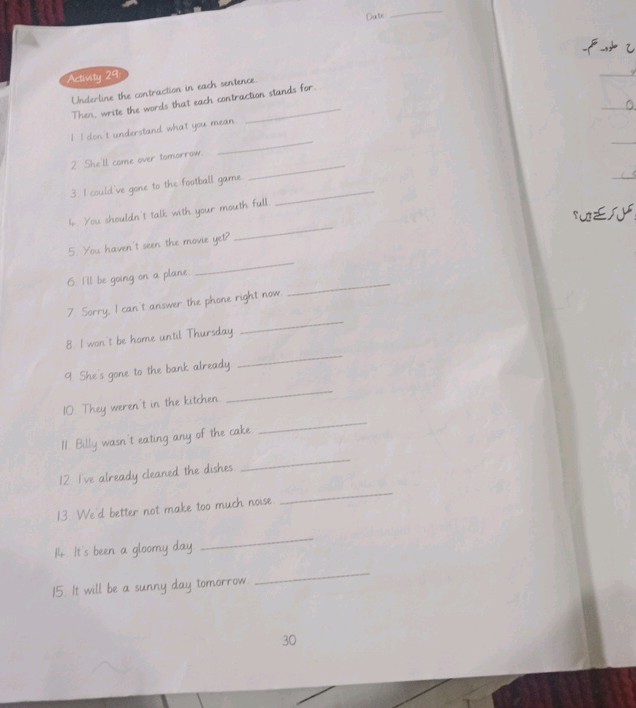 Date
Activity 29
Underline the contraction in each sentence.
Then, write the words that each contraction stands for.
1. I don't understand what you mean.
2. She'll come over tomorrow.
3. I could've gone to the football game.
4. You shouldn't talk with your mouth full.
5. You haven't seen the movie yet?
6. I'll be going on a plane.
7. Sorry, I can't answer the phone right now.
8. I won't be home until Thursday.
9. She's gone to the bank already.
10. They weren't in the kitchen.
11. Billy wasn't eating any of the cake.
12. I've already cleaned the dishes.
13. We'd better not make too much noise.
14. It's been a gloomy day.
15. It will be a sunny day tomorrow.
30